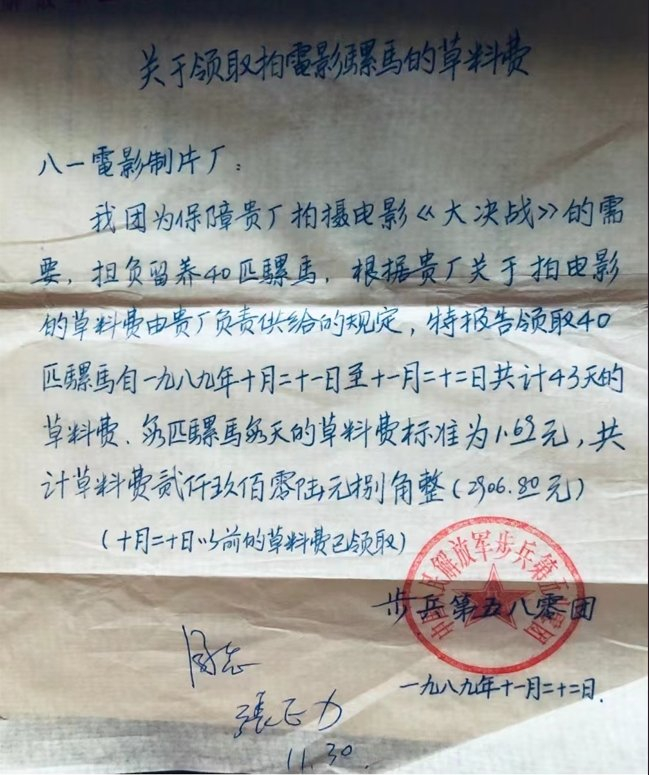 关于领取拍電影骡馬的草料费
八一電影制片厂：
我团为保障贵厂拍摄电影《大决战》的需
要，担负留养40匹骡馬，根据贵厂关于拍电影
的草料费由贵厂负责供给的规定，特报告领取40
匹骡馬自一九八九年十月二十一日至十一月二十二日共计43天的
草料费、每匹骡馬每天的草料费标准为1.69元，共
计草料费贰仟玖佰零陆元捌角整(2906.80元)
(十月二十日以前的草料费已领取)
中国人民解放军步兵第五八零团
步兵第五八零团
一九八九年十一月二十二日.
張正力
11.30.